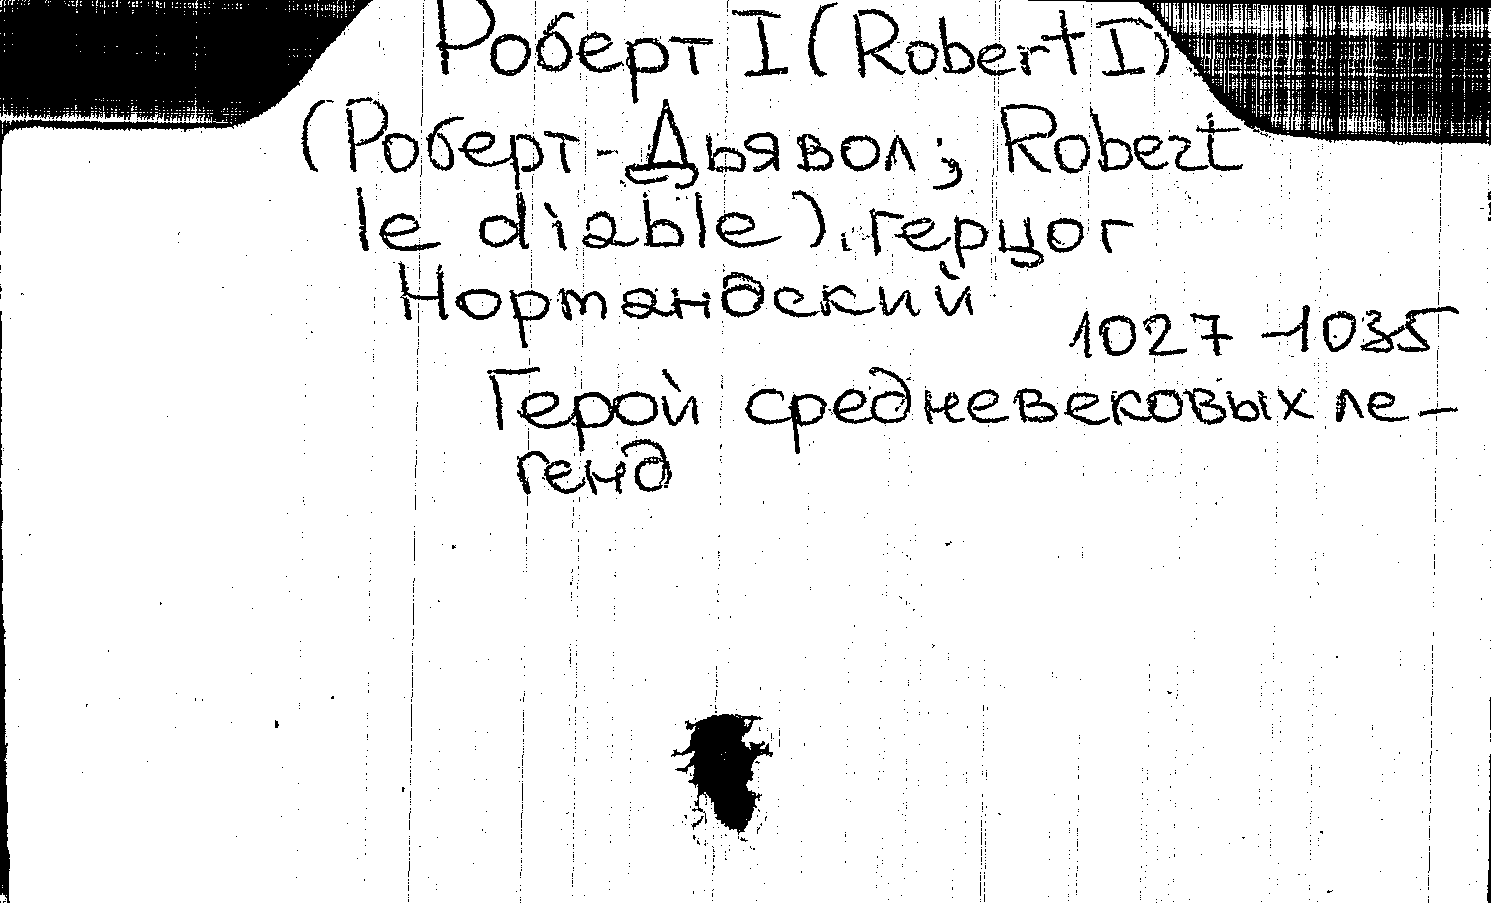 Роберт I (Robert I)
(Роберт-Дьявол; Robert
le diable), герцог
Нормандский
1027-1035
Герой средневековых ле-
генд